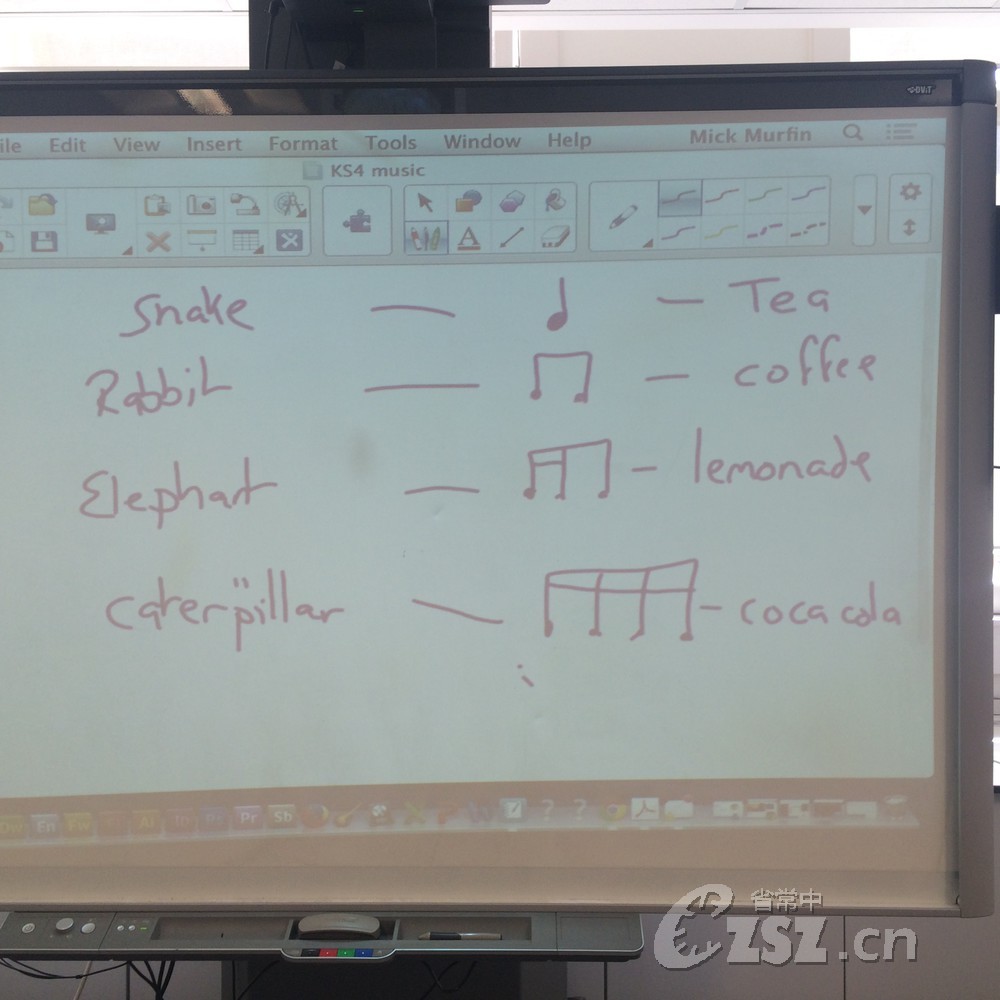 DViT
ile Edit View Insert Format Tools Window Help Mick Murfin
KS4 music
Snake — — Tea
Rabbit — — coffee
Elephant — — lemonade
Caterpillar — — coca cola
En Pr Sb
? ?
省常中
CZSZ.cn